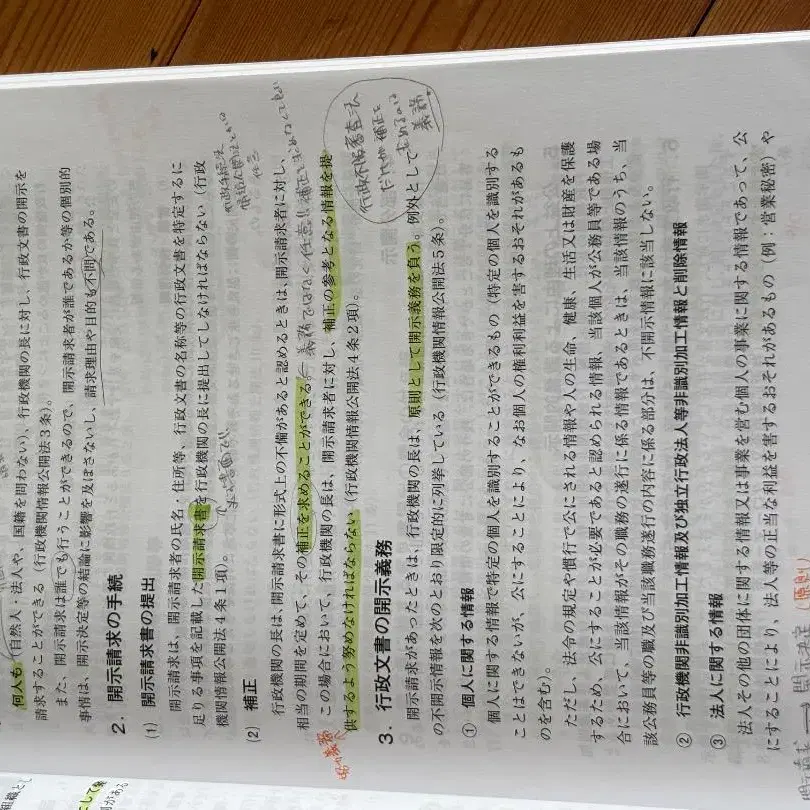 何人も（自然人・法人や、国籍を問わない）、行政機関の長に対し、行政文書の開示を
請求することができる（行政機関情報公開法３条）。
また、開示請求は誰でも行うことができるので、開示請求者が誰であるか等の個別的
事情は、開示決定等の結論に影響を及ぼさないし、請求理由や目的も不問である。
２．開示請求の手続
(1) 開示請求書の提出
開示請求は、開示請求者の氏名・住所等、行政文書の名称等の行政文書を特定するに
足りる事項を記載した開示請求書を行政機関の長に提出してしなければならない（行政
機関情報公開法４条１項）。
(2) 補正
行政機関の長は、開示請求書に形式上の不備があると認めるときは、開示請求者に対し、
相当の期間を定めて、その補正を求めることができる。
義務ではなく任意！補正を求めなくても
この場合において、行政機関の長は、開示請求者に対し、補正の参考となる情報を提
供するよう努めなければならない（行政機関情報公開法４条２項）。
努力義務
行政不服審査法
だと補正を
求めるのは
義務。
３．行政文書の開示義務
開示請求があったときは、行政機関の長は、原則として開示義務を負う。例外として
の不開示情報を次のとおり限定的に列挙している（行政機関情報公開法５条）。
① 個人に関する情報
個人に関する情報で特定の個人を識別することができるもの（特定の個人を識別する
ことはできないが、公にすることにより、なお個人の権利利益を害するおそれがあるも
のを含む）。
ただし、法令の規定や慣行で公にされる情報や人の生命、健康、生活又は財産を保護
するため、公にすることが必要であると認められる情報、当該個人が公務員等である場
合において、当該情報がその職務の遂行に係る情報であるときは、当該情報のうち、当
該公務員等の職及び当該職務遂行の内容に係る部分は、不開示情報に該当しない。
② 行政機関非識別加工情報及び独立行政法人等非識別加工情報と削除情報
③ 法人に関する情報
法人その他の団体に関する情報又は事業を営む個人の事業に関する情報であって、公
にすることにより、法人等の正当な利益を害するおそれがあるもの（例：営業秘密）や
開示決定（原則）